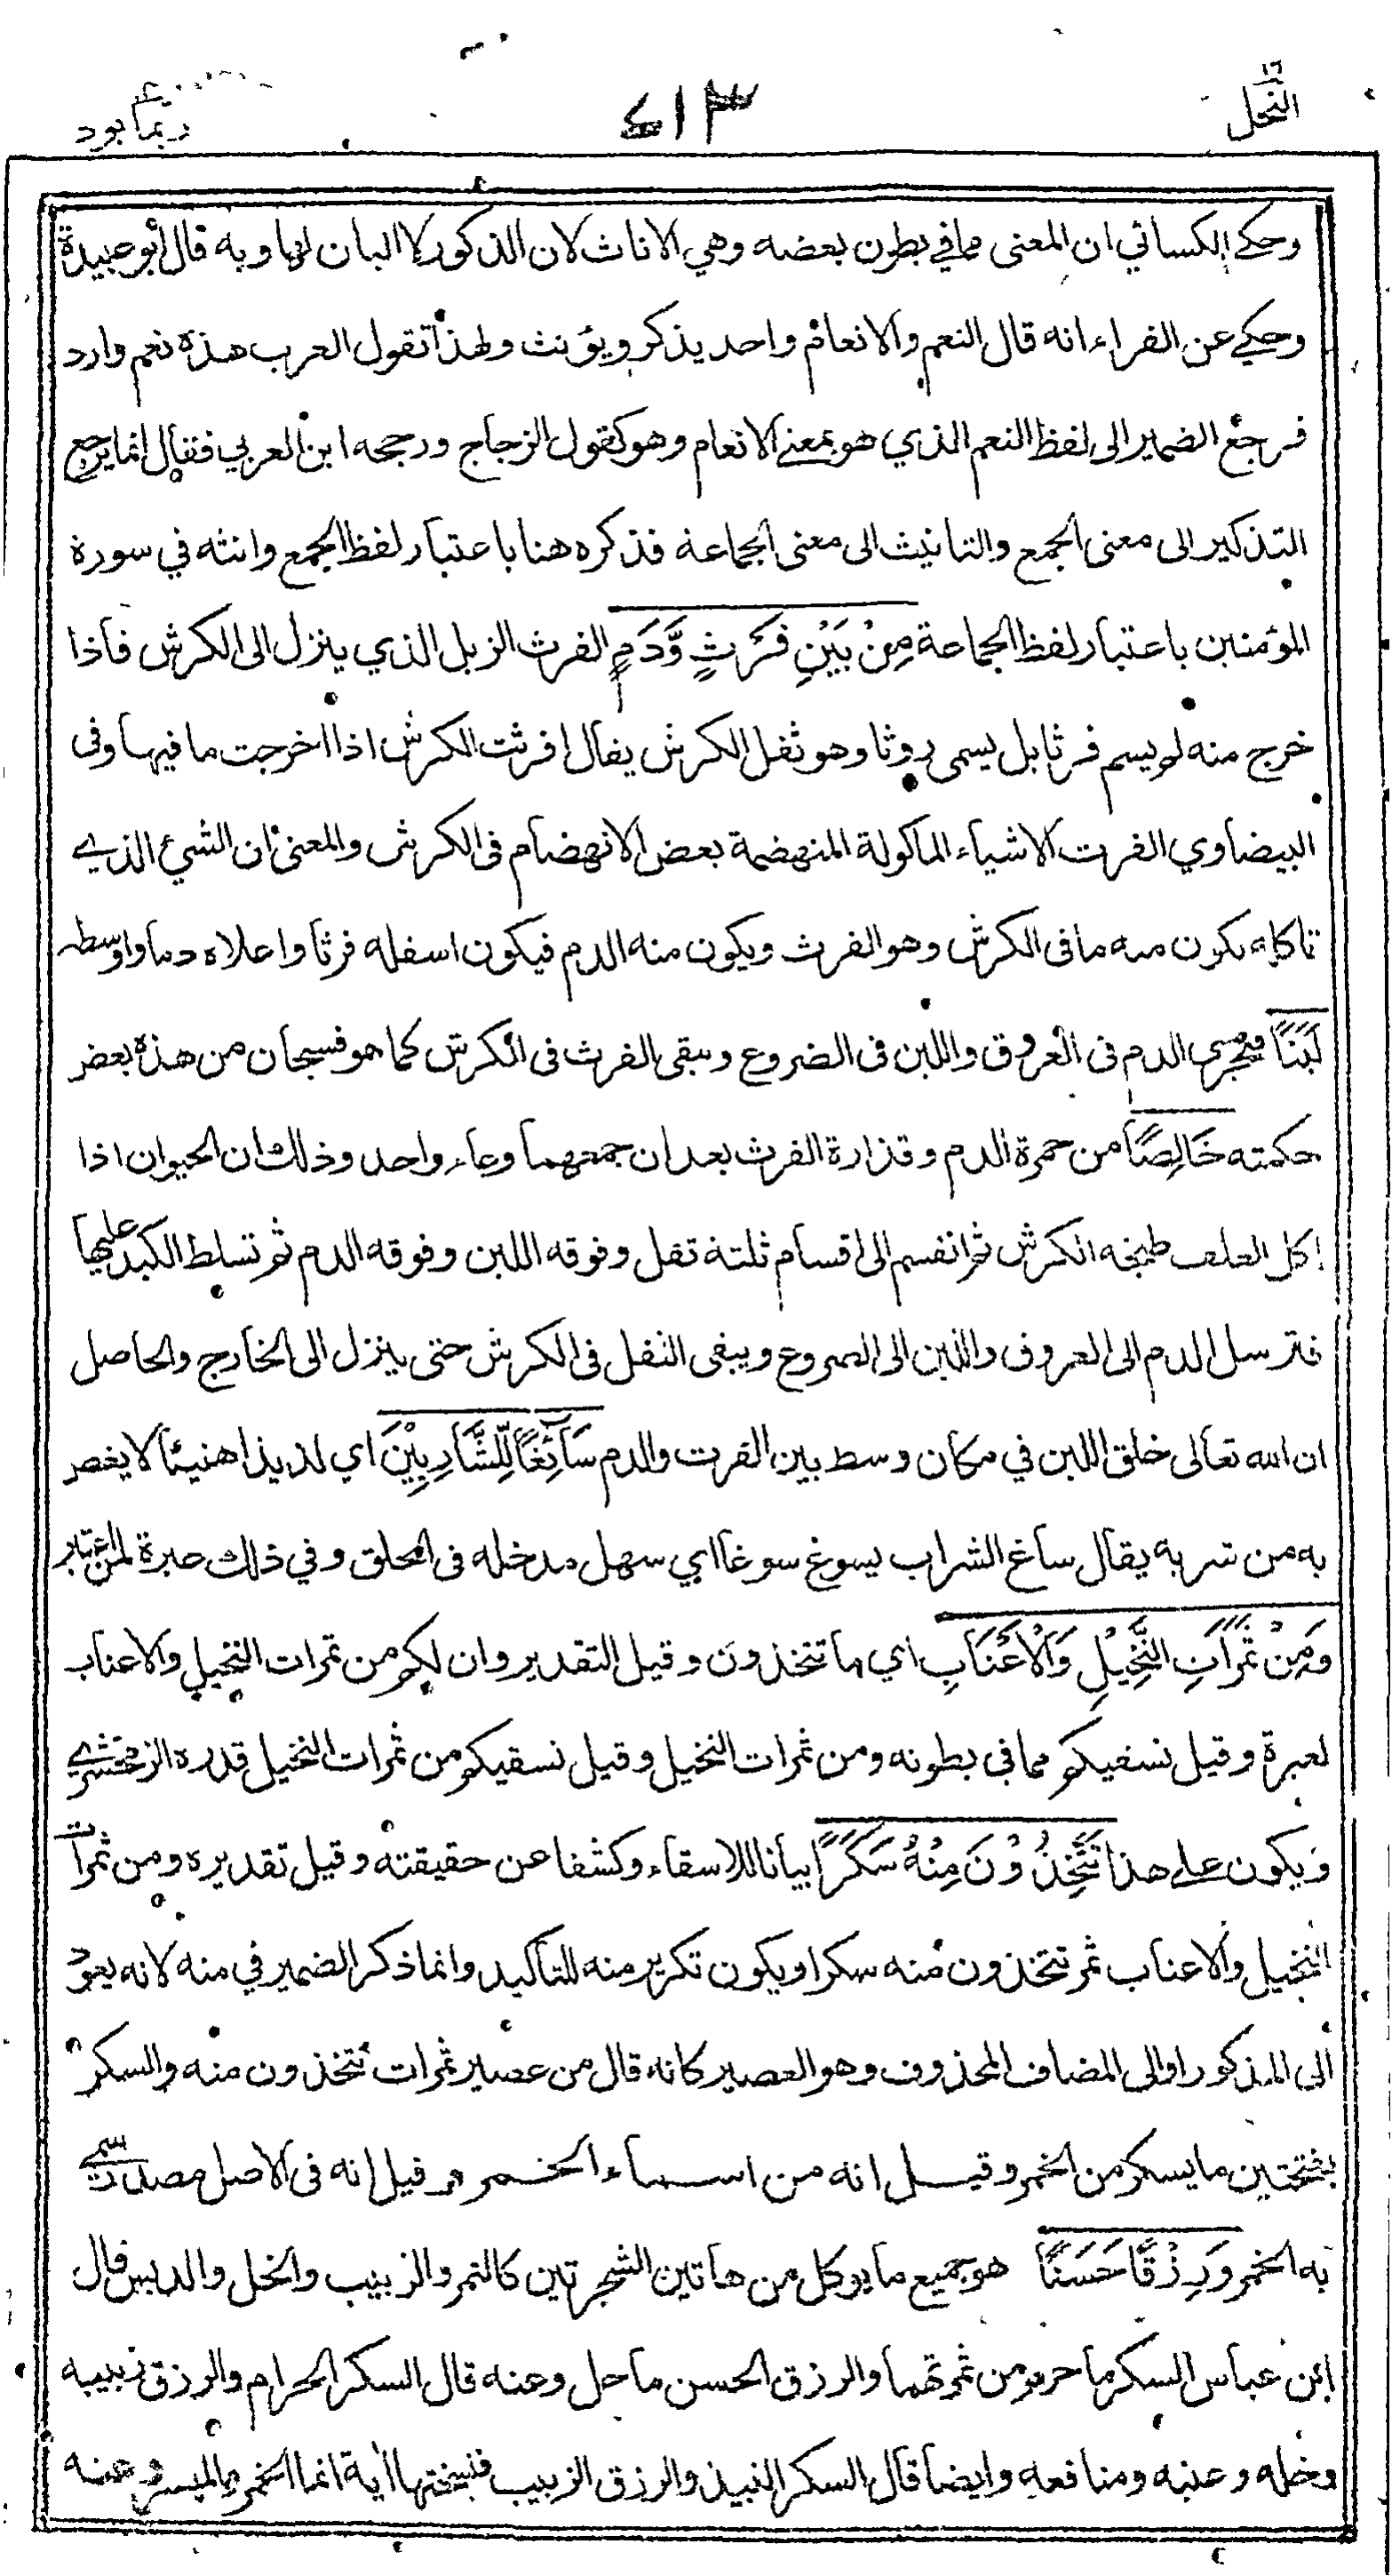 النحل ١٦
٤١٣
ربما بود
وحكى الكسائي ان المعنى مما في بطون بعضه وهي الاناث لان الذكور لا البان لها وبه قال أبو عبيدة
وحكي عن الفراء انه قال النعم والانعام واحد يذكر ويؤنث ولهذا تقول العرب هذه نعم وارد
فرجع الضمير الى لفظ النعم الذي هو بمعنى الانعام وهو كقول الزجاج ورجحه ابن العربي فقال انما يرجع
التذكير الى معنى الجمع والتانيث الى معنى الجماعة فذكره هنا باعتبار لفظ الجمع وانثه في سورة
المؤمنين باعتبار لفظ الجماعة مِنْ بَيْنِ فَرْثٍ وَّدَمٍ الفرث الزبل الذي ينزل الى الكرش فاذا
خرج منه لم يسم فرثا بل يسمى روثا وهو ثفل الكرش يقال افرثت الكرش اذا اخرجت ما فيها وفى
البيضاوي الفرث الاشياء الماكولة المنهضمة بعض الانهضام فى الكرش والمعنى ان الشيء الذي
تاكله يكون منه ما فى الكرش وهو الفرث ويكون منه الدم فيكون اسفله فرثا واعلاه دما واوسطه
لَبَنًا فيجري الدم فى العروق واللبن فى الضروع ويبقى الفرث فى الكرش كما هو فسبحان من هذه بعض
حكمته خَالِصًا من حمرة الدم وقذارة الفرث بعد ان جمعهما وعاء واحد وذلك ان الحيوان اذا
اكل العلف طبخه الكرش ثم انقسم الى اقسام ثلثة ثفل وفوقه اللبن وفوقه الدم ثم تسلط الكبد عليها
فترسل الدم الى العروق واللبن الى الضروع ويبقى الثفل فى الكرش حتى ينزل الى الخارج والحاصل
ان الله تعالى خلق اللبن في مكان وسط بين الفرث والدم سَآئِغًا لِّلشَّارِبِيْنَ اي لذيذا هنيئا لا يغص
به من شربه يقال ساغ الشراب يسوغ سوغا اي سهل مدخله فى الحلق وفي ذلك عبرة لمن اعتبر
وَمِنْ ثَمَرَاتِ النَّخِيْلِ وَالْاَعْنَابِ اي ما تتخذون وقيل التقدير وان لكم من ثمرات النخيل والاعناب
لعبرة وقيل نسقيكم مما فى بطونه ومن ثمرات النخيل وقيل نسقيكم من ثمرات النخيل قدره الزمخشري
ويكون على هذا تَتَّخِذُوْنَ مِنْهُ سَكَرًا بيانا للاسقاء وكشفا عن حقيقته وقيل تقديره ومن ثمرات
النخيل والاعناب ثمر تتخذون منه سكرا ويكون تكرير منه للتاكيد وانما ذكر الضمير في منه لانه يعود
الى المذكور او الى المضاف المحذوف وهو العصير كانه قال من عصير ثمرات تتخذون منه والسكر
بفتحتين ما يسكر من الخمر وقيل انه من اسماء الخمر وقيل انه فى الاصل مصدر سمي
به الخمر وَرِزْقًا حَسَنًا هو جميع ما يوكل من هاتين الشجرتين كالتمر والزبيب والخل والدبس قال
ابن عباس السكر ما حرم من ثمرتهما والرزق الحسن ما حل وعنه قال السكر الحرام والرزق زبيبه
وخله وعنبه ومنافعه وايضا قال السكر النبيذ والرزق الزبيب فنسختها اية انما الخمر والميسر وعنه